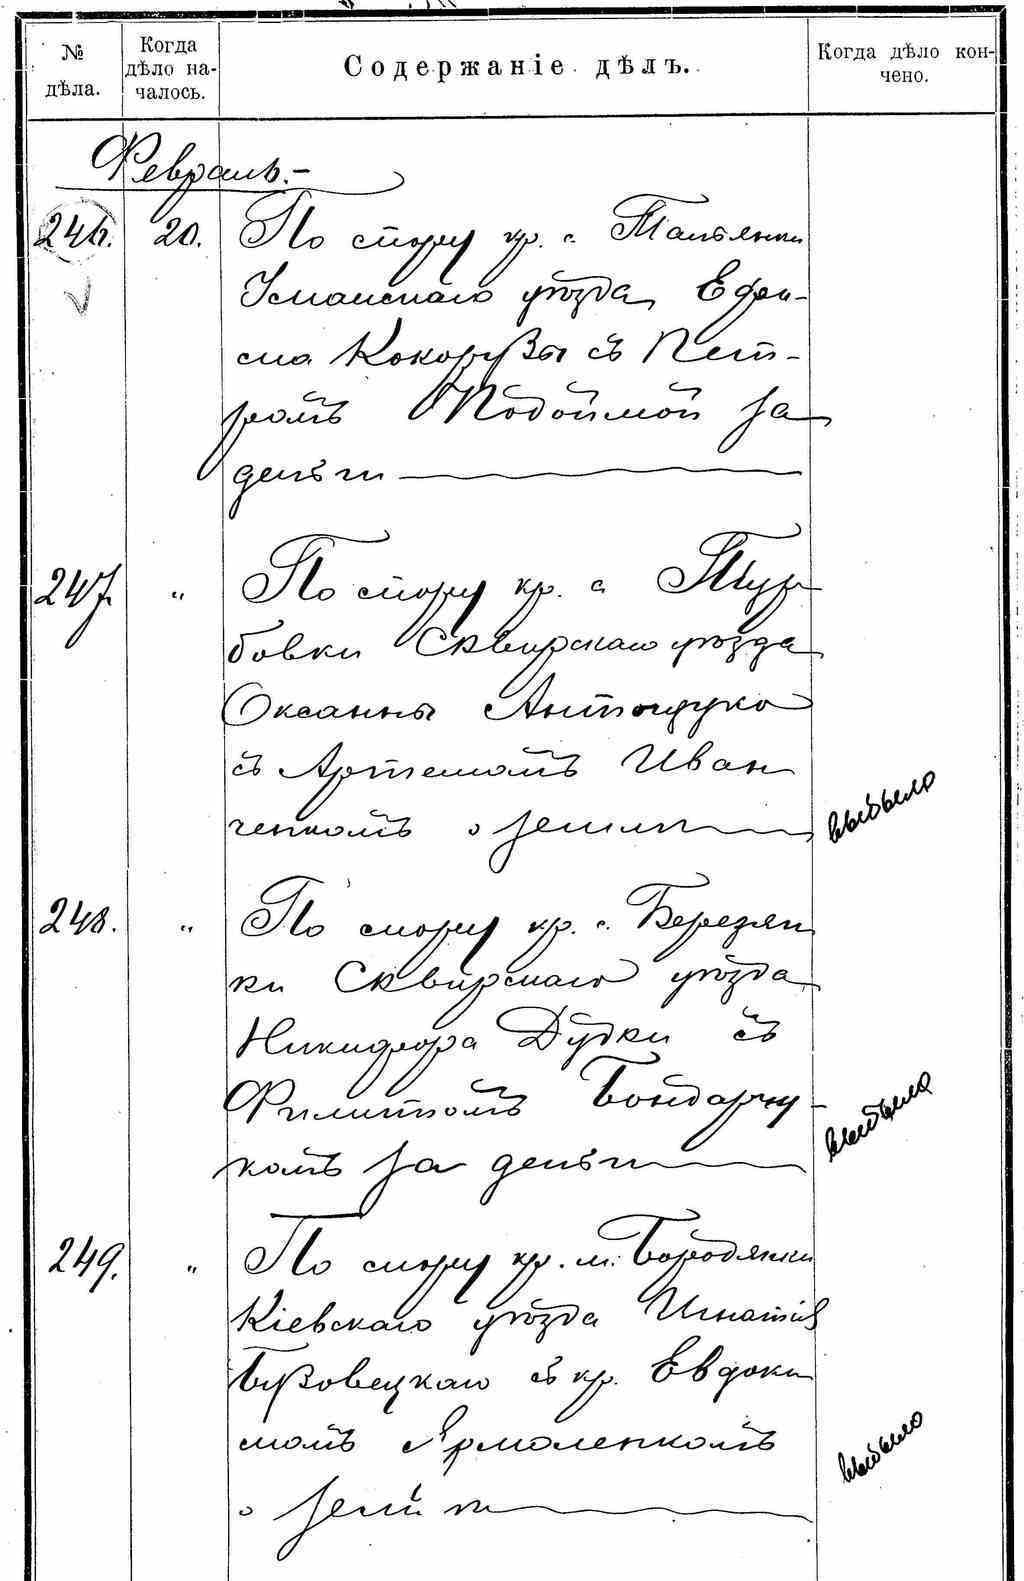 № дѣла.
Когда дѣло на-
чалось.
Содержаніе дѣлъ.
Когда дѣло кон-
чено.
Февраль.-
246. 20. По спору кр. с. Тальянки
Уманскаго уѣзда Ефи-
ма Кокорузы съ Пет-
ромъ Подоймой за
деньги
247. " По спору кр. с. Тур
бовки Сквирскаго уѣзда
Оксаны Антощука
съ Артемомъ Иван
ченкомъ о земли
выбыло
248. " По спору кр. с. Березян
ки Сквирскаго уѣзда
Никифора Дудки съ
Филиппомъ Бондарчу-
комъ за деньги
выбыло
249. " По спору кр. м. Бородянки
Кіевскаго уѣзда Игнатія
Бузовецкаго съ кр. Евдоки
момъ Ярмоленкомъ
о земли
выбыло